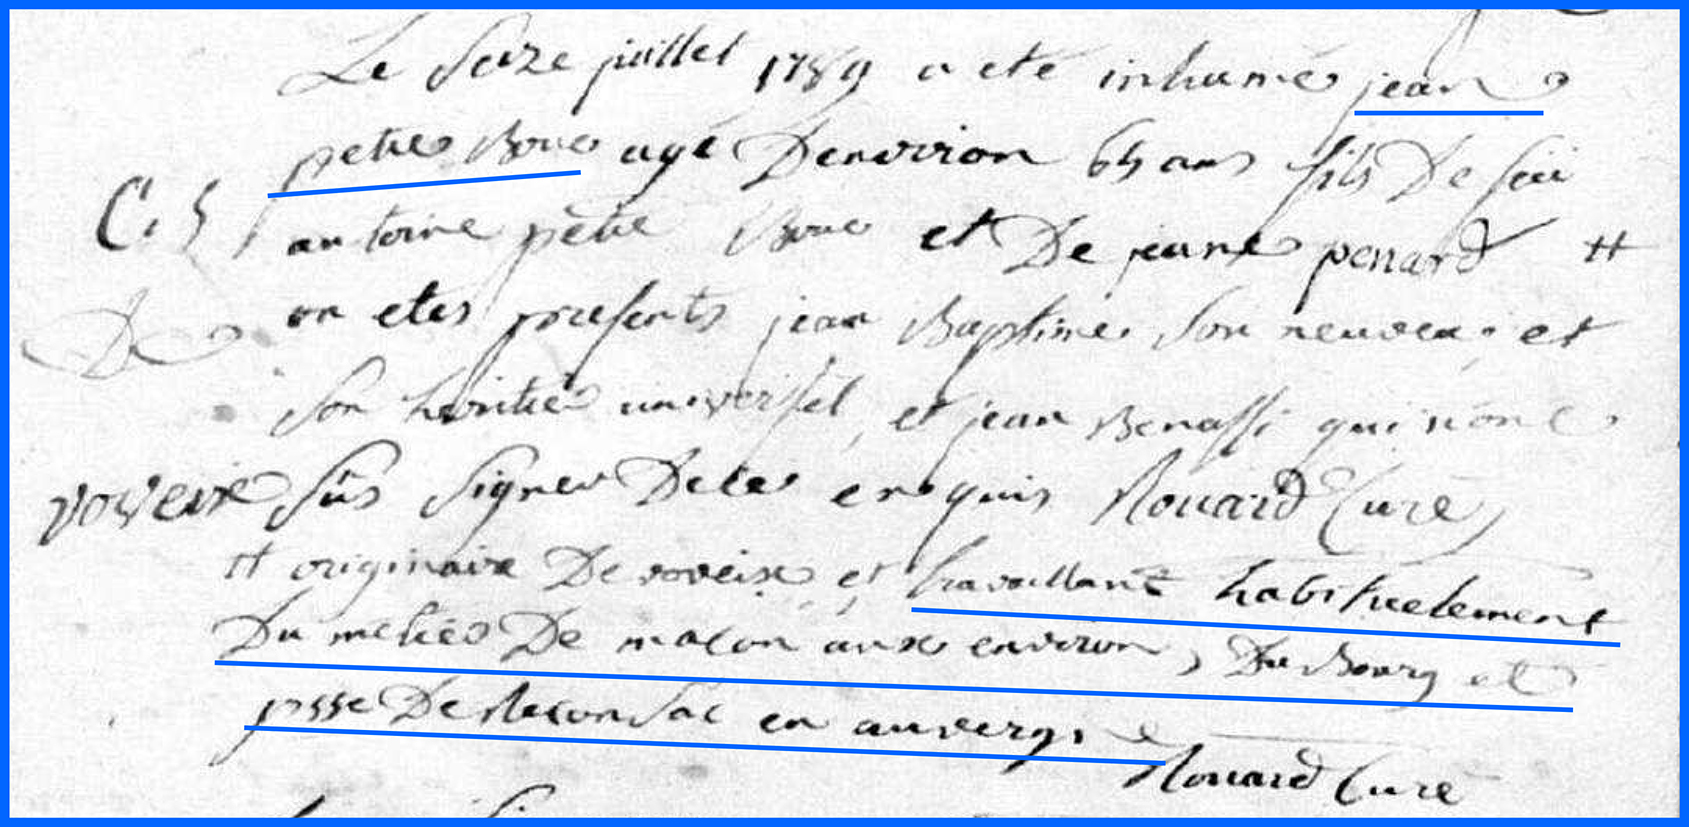 Le Seize juillet 1789 a eté inhumé jean
petit Bouc agé Denviron 65 ans fils De feu
C. 5 antoine petit Bouc et De jeanne penard #
on etes presents jean Baptiste son neuveu et
son heritier universel, et jean Benassi qui n'ont
voveix sus signer De ce enquis Rouard Curé
# originaire De voveix et travaillant habituelement
Du metier De maçon aux environ, Du Bourg et
psse De en auvergne
Rouard Curé